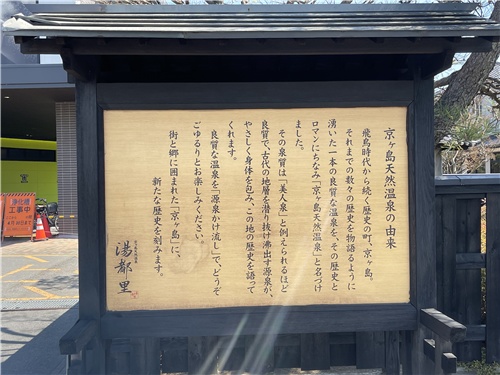 京ヶ島天然温泉の由来
飛鳥時代から続く歴史の町、京ヶ島。
それまでの数々の歴史を物語るように
湧いた一本の良質な温泉を、その歴史と
ロマンにちなみ「京ヶ島天然温泉」と名づけ
ました。
その泉質は「美人泉」と例えられるほど
良質で、古代の地層を潜り抜け沸出す源泉が、
やさしく身体を包み、この地の歴史を語って
くれます。
良質な温泉を「源泉かけ流し」で、どうぞ
ごゆるりとお楽しみください。
街と郷に囲まれた「京ヶ島」に、
新たな歴史を刻みます。
湯都里
浄化槽
工事中